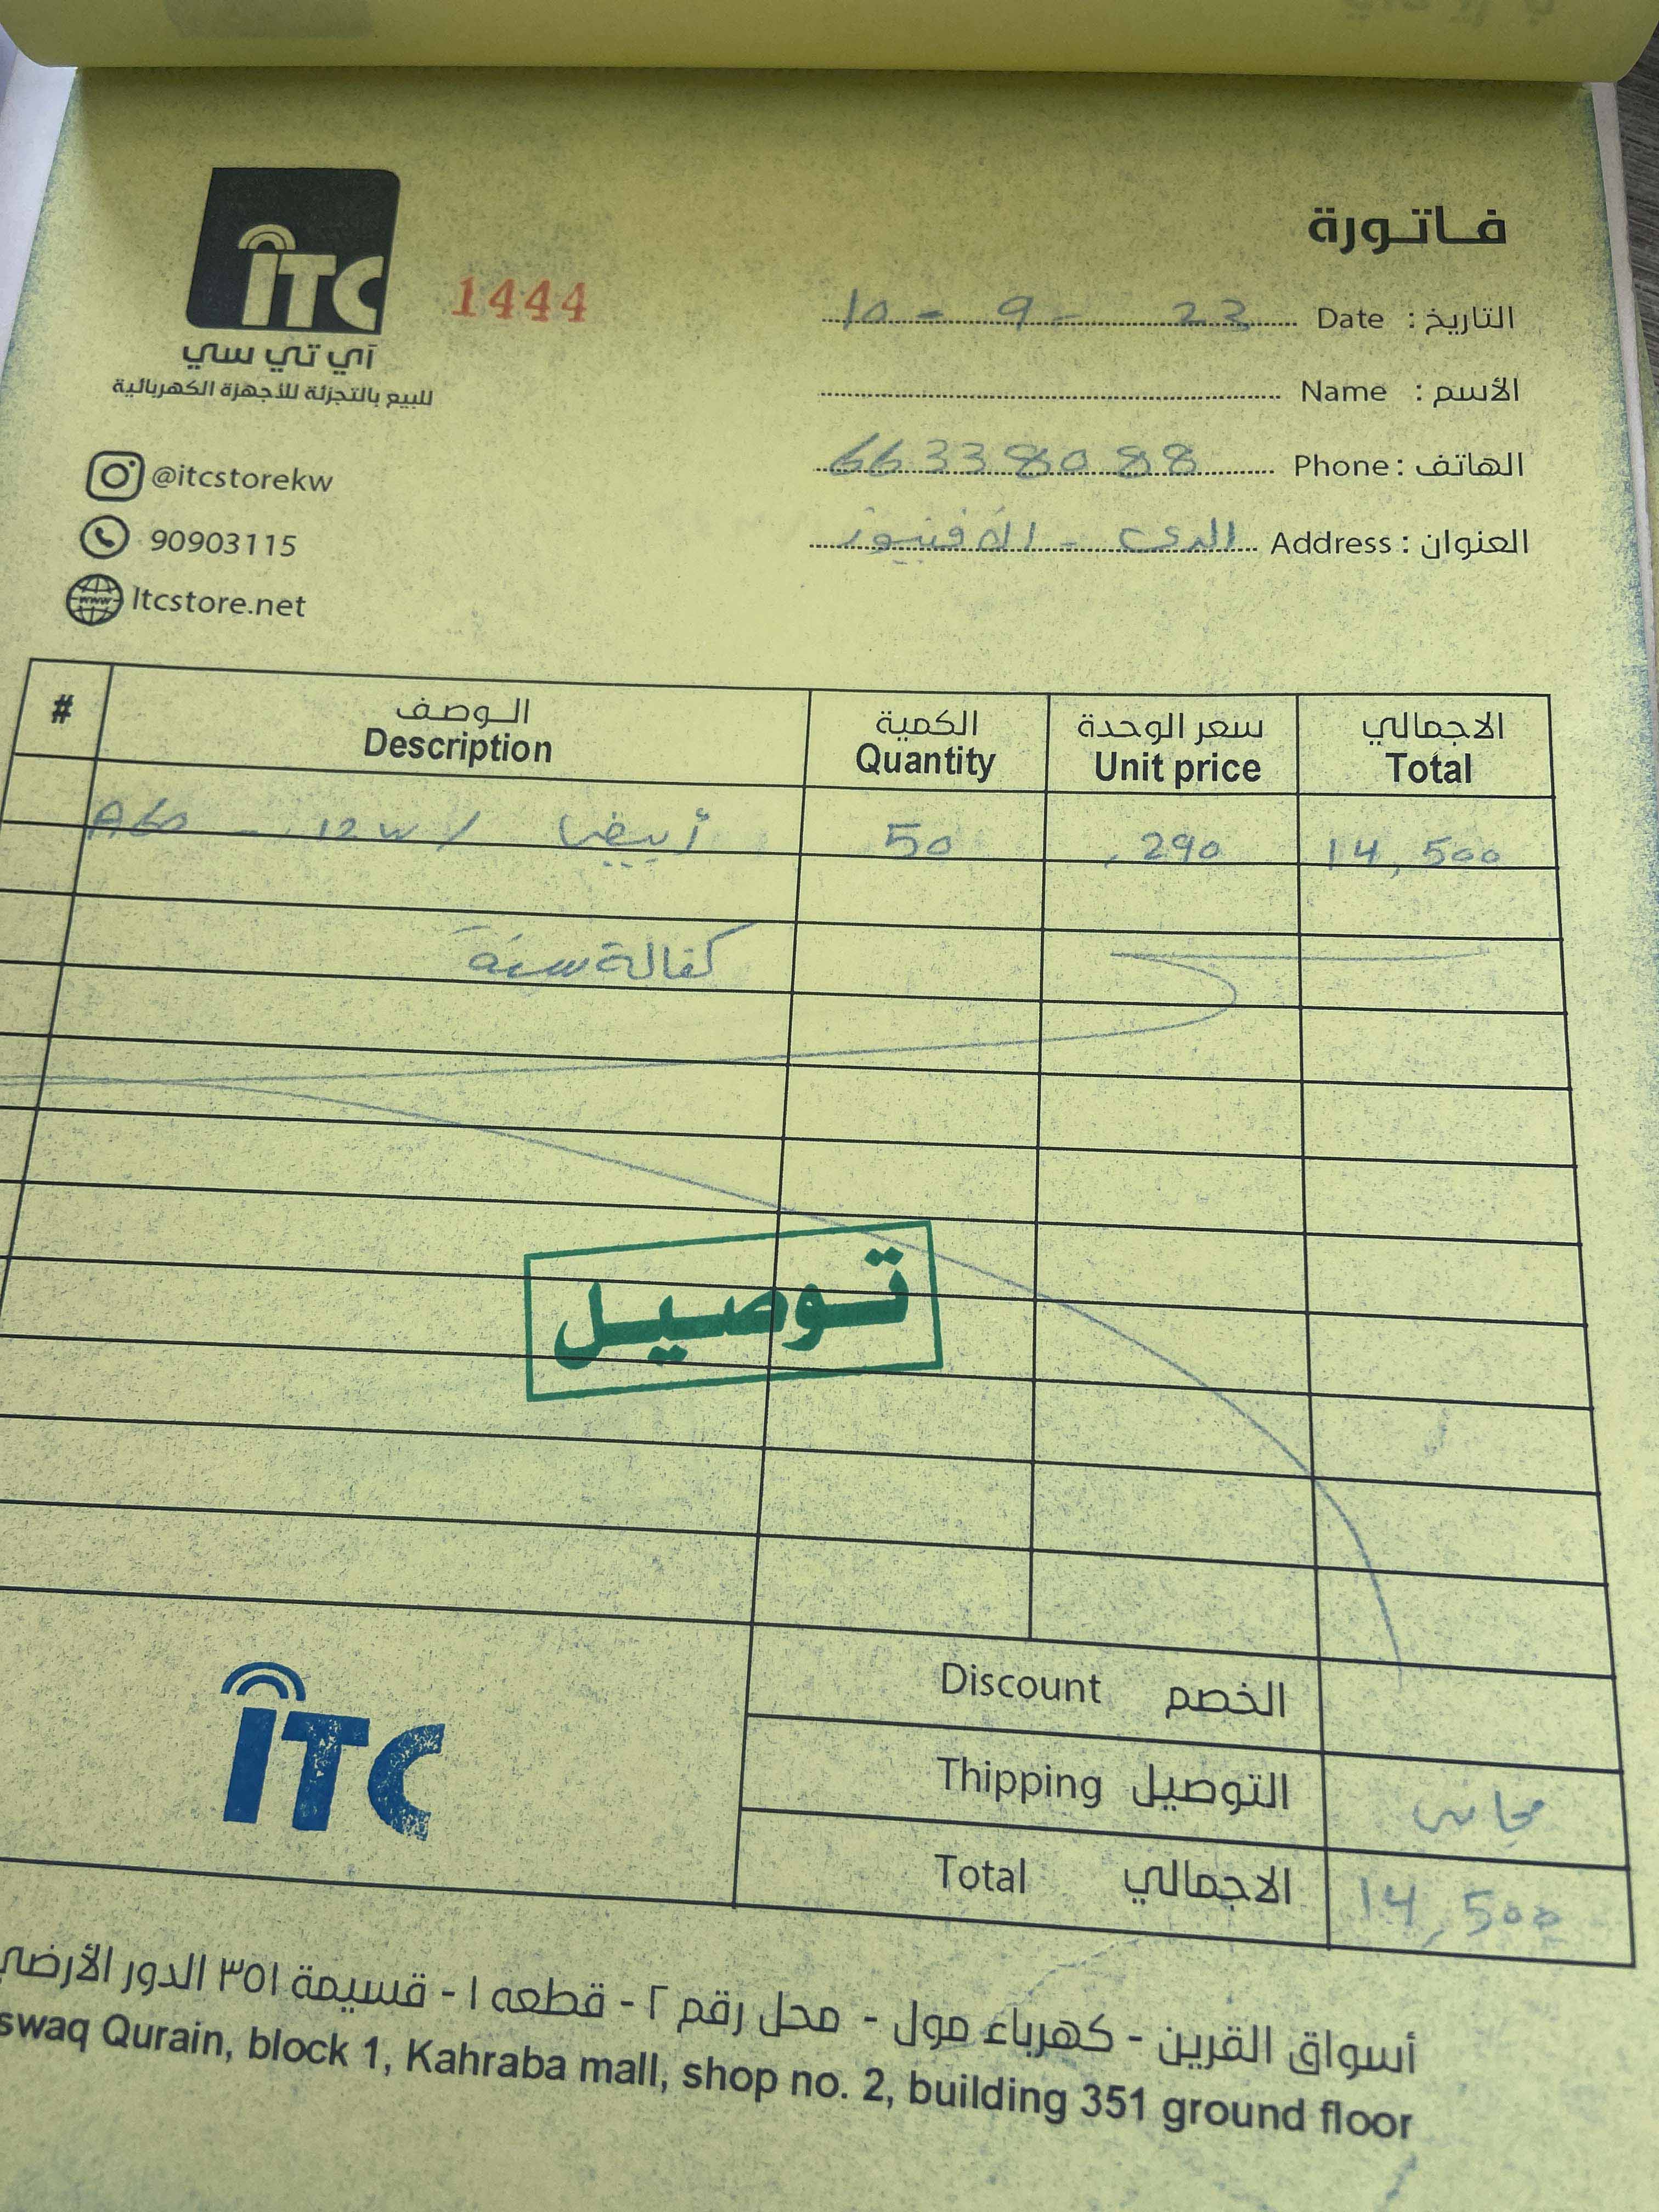 فاتورة
ITC
1444
آي تي سي
للبيع بالتجزئة للأجهزة الكهربائية
التاريخ : Date 10 - 9 - 23
الأسم : Name
الهاتف : Phone 66338088
العنوان : Address
@itcstorekw
90903115
Itcstore.net
# الوصف الكمية سعر الوحدة الاجمالي
Description Quantity Unit price Total
A60 - 12w / أبيض 50 .290 14,500
كفالة سنة
توصيل
ITC
Discount الخصم
Thipping التوصيل مجاني
Total الاجمالي 14,500
أسواق القرين - كهرباء مول - محل رقم ٢ - قطعه ١ - قسيمة ٣٥١ الدور الأرضي
swaq Qurain, block 1, Kahraba mall, shop no. 2, building 351 ground floor